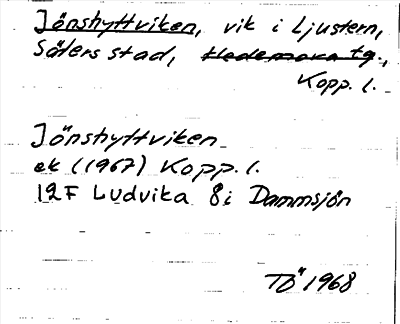 Jönshyttviken, vik i Ljustern,
Säters stad, Hedemora tg.,
Kopp. l.
Jönshyttviken
ek (1967) Kopp. l.
12F Ludvika 8i Dammsjön
TÖ 1968